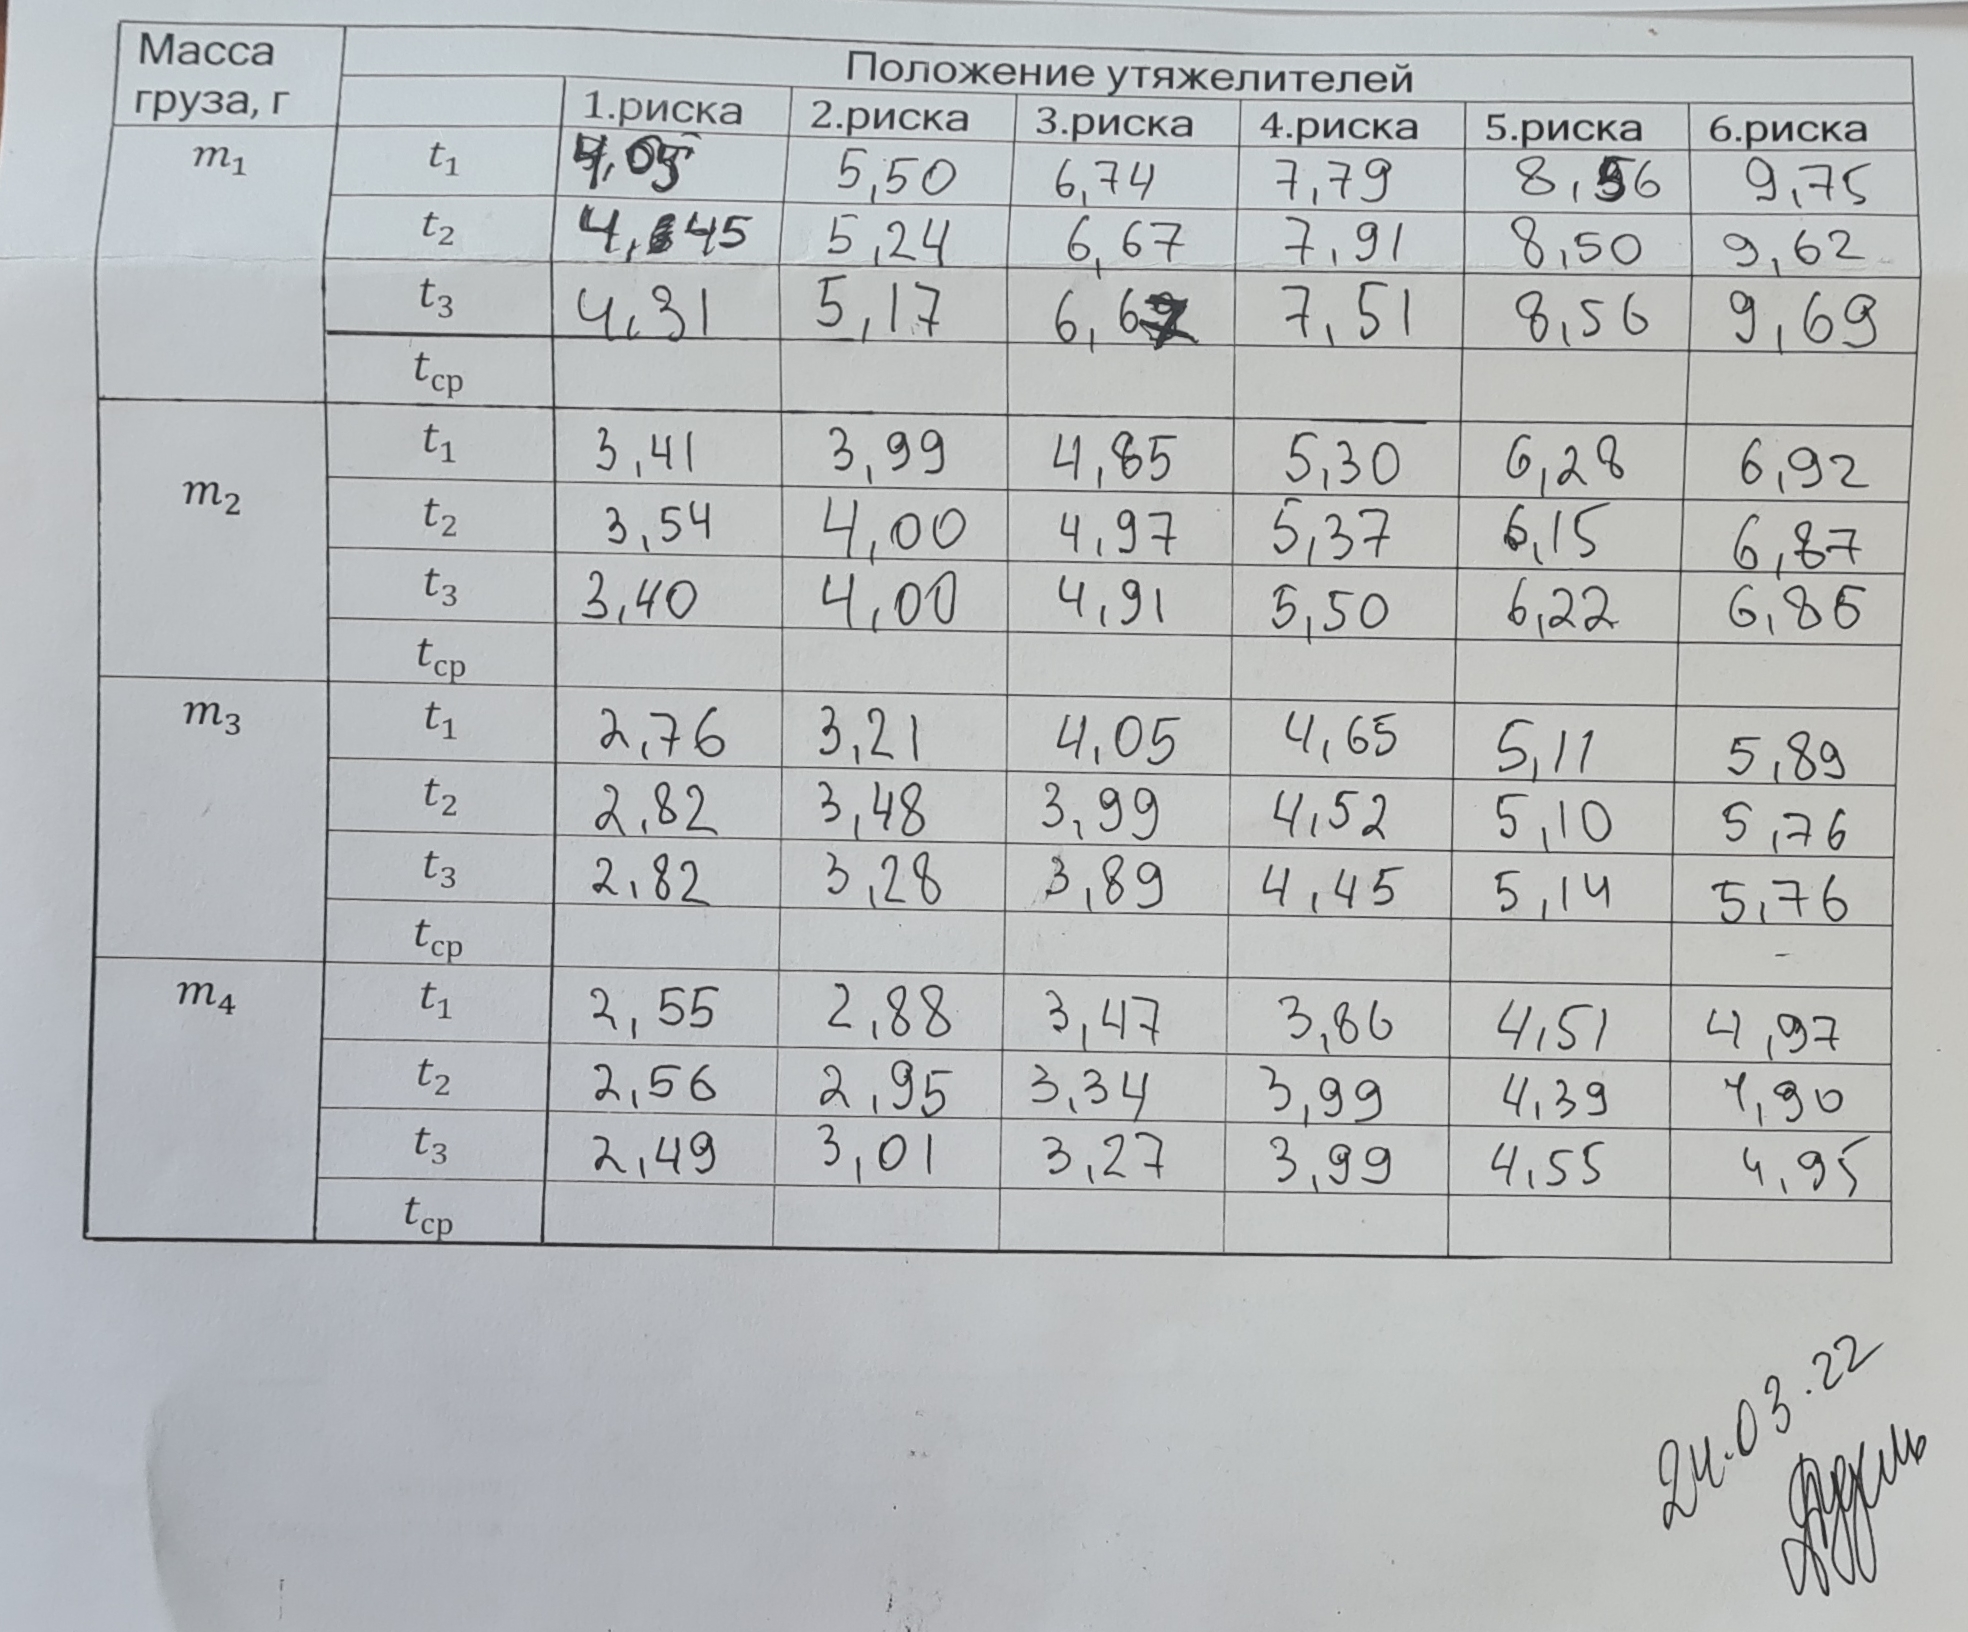 Масса груза, г Положение утяжелителей
1.риска 2.риска 3.риска 4.риска 5.риска 6.риска
m₁ t₁ 4,05 5,50 6,74 7,79 8,56 9,75
t₂ 4,45 5,24 6,67 7,91 8,50 9,62
t₃ 4,31 5,17 7,51 8,56 9,69
tср
m₂ t₁ 3,41 3,99 4,85 5,30 6,28 6,92
t₂ 3,54 4,00 4,97 5,37 6,15 6,87
t₃ 3,40 4,00 4,91 5,50 6,22 6,86
tср
m₃ t₁ 2,76 3,21 4,05 4,65 5,11 5,89
t₂ 2,82 3,48 3,99 4,52 5,10 5,76
t₃ 2,82 3,28 3,89 4,45 5,14 5,76
tср -
m₄ t₁ 2,55 2,88 3,47 3,86 4,51 4,97
t₂ 2,56 2,95 3,34 3,99 4,39 4,90
t₃ 2,49 3,01 3,27 3,99 4,55 4,95
tср
24.03.22